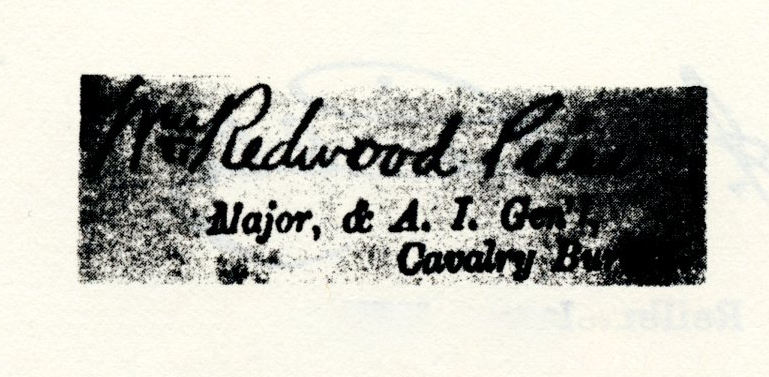 Wm Redwood Price
Major, & A. I. Gen'l,
Cavalry Bureau